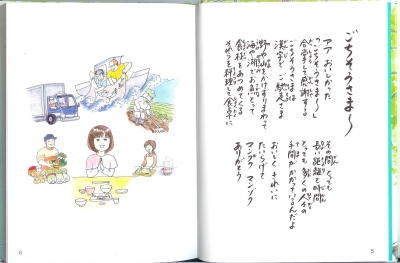 ごちそうさま〜
アア おいしかった
「ごちそうさま〜」と
合掌して感謝する
ごちそうさまは
漢字で ご馳走さま
野や山をかけずりまわって
海や湖で
食材をあつめてくる
それを料理して食卓に
その間 とっても
長い距離と時間
とっても 多くの人々の
手間がかかっているんだよ
おいしく きれいに
たいらげて
マンプク マンゾク
ありがとう
6
5